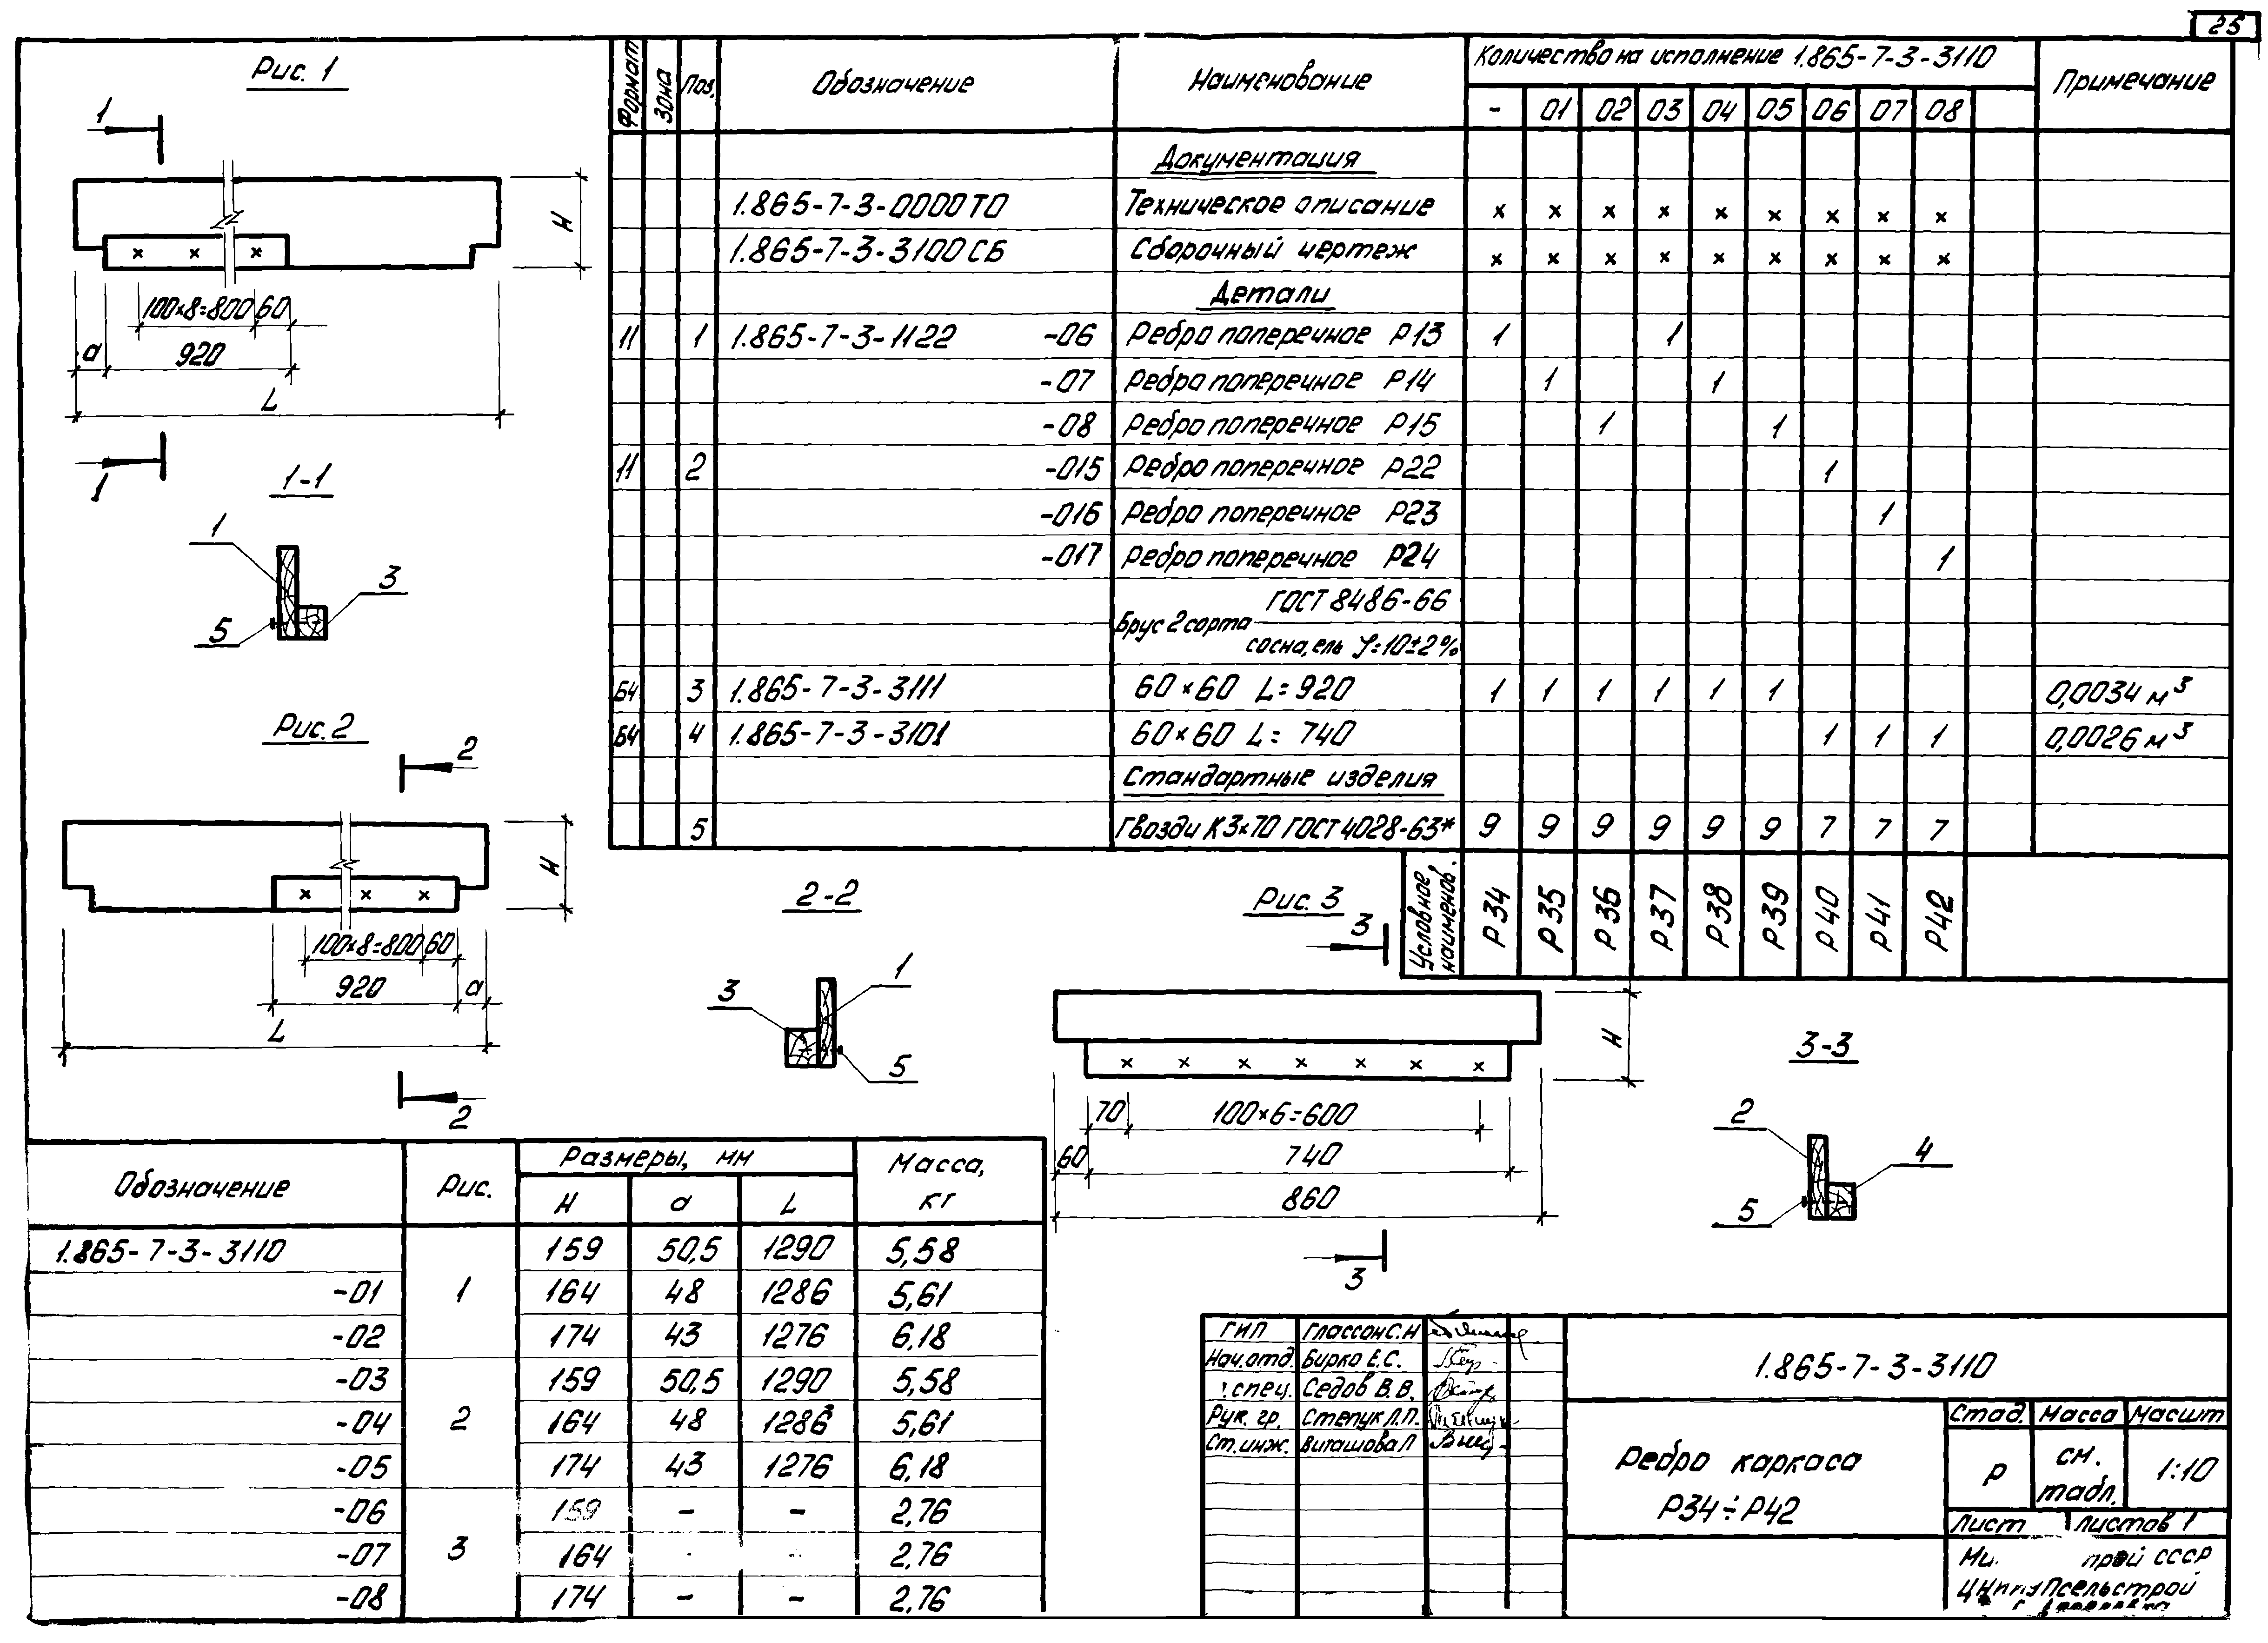 25
Рис. 1
1
H
100×8=800 60
а 920
L
1
1-1
1
3
5
Рис. 2
2
H
100×8=800 60
920 а
L
2
2-2
3
1
5
Рис. 3
3
H
70 100×6=600
60 740
860
3
3-3
2
4
5
Формат Зона Поз. Обозначение Наименование Количество на исполнение 1.865-7-3-3110 Примечание
- 01 02 03 04 05 06 07 08
Документация
1.865-7-3-0000ТО Техническое описание х х х х х х х х х
1.865-7-3-3100СБ Сборочный чертеж х х х х х х х х х
Детали
11 1 1.865-7-3-1122 -06 Ребро поперечное Р13 1 1
-07 Ребро поперечное Р14 1 1
-08 Ребро поперечное Р15 1 1
11 2 -015 Ребро поперечное Р22 1
-016 Ребро поперечное Р23 1
-017 Ребро поперечное Р24 1
ГОСТ 8486-66
Брус 2 сорта
сосна, ель φ=10±2%
Б4 3 1.865-7-3-3111 60×60 L=920 1 1 1 1 1 1 0,0034 м³
Б4 4 1.865-7-3-3101 60×60 L= 740 1 1 1 0,0026 м³
Стандартные изделия
5 Гвозди К 3×70 ГОСТ 4028-63* 9 9 9 9 9 9 7 7 7
Условное наименов. Р34 Р35 Р36 Р37 Р38 Р39 Р40 Р41 Р42
Обозначение Рис. Размеры, мм Масса, кг
H а L
1.865-7-3-3110 159 50,5 1290 5,58
-01 1 164 48 1286 5,61
-02 174 43 1276 6,18
-03 159 50,5 1290 5,58
-04 2 164 48 1286 5,61
-05 174 43 1276 6,18
-06 159 - - 2,76
-07 3 164 2,76
-08 174 - - 2,76
ГИП Глассон С.Н
Нач.отд. Бирко Е.С.
спец. Седов В.В.
Рук. гр. Степук Л.П.
Ст.инж. Виташова Л
1.865-7-3-3110
Ребро каркаса
Р34÷Р42
Стад. Масса Масшт
Р см. табл. 1:10
Лист Листов 1
СССР